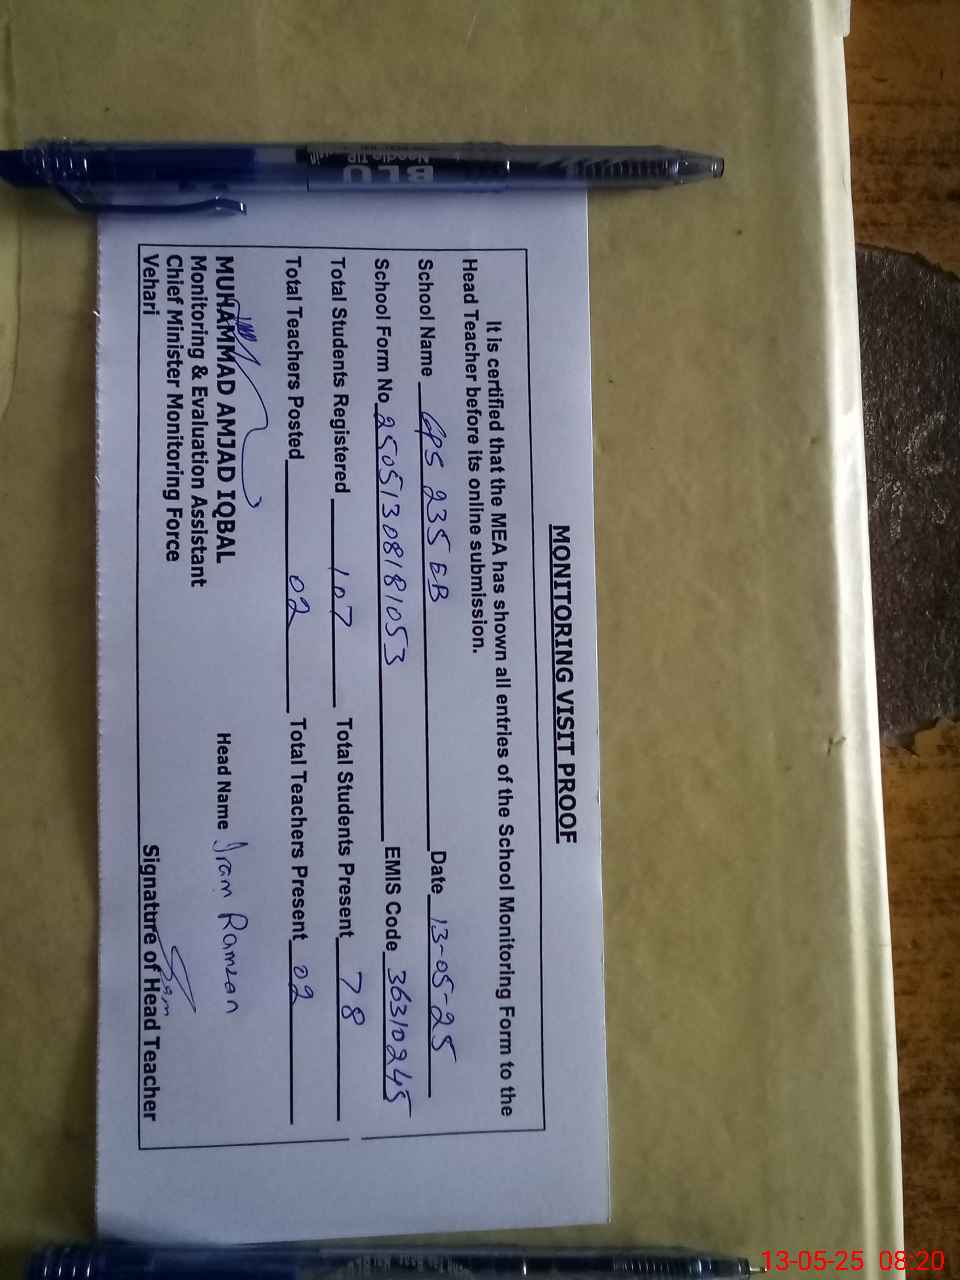 MONITORING VISIT PROOF
It is certified that the MEA has shown all entries of the School Monitoring Form to the
Head Teacher before its online submission.
School Name GPS 235 EB Date 13-05-25
School Form No 25051308181053 EMIS Code 36310245
Total Students Registered 107 Total Students Present 78
Total Teachers Posted 02 Total Teachers Present 02
MUHAMMAD AMJAD IQBAL Head Name Iram Ramzan
Monitoring & Evaluation Assistant
Chief Minister Monitoring Force
Vehari Signature of Head Teacher
Needle TIP
13-05-25 08:20